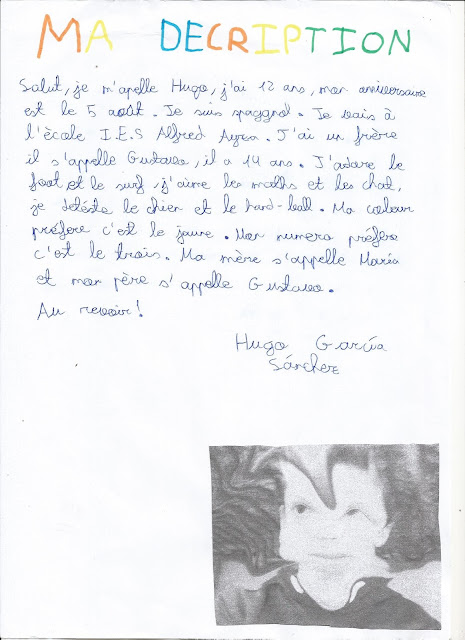 MA DECRIPTION
Salut, je m'apelle Hugo, j'ai 12 ans, mon anniversaire
est le 5 août. Je suis spaggnol. Je vais à
l'école I.E.S Alfred Ayza. J'ai un frère
il s'appelle Gustavo, il a 14 ans. J'adore le
foot, et le surf, j'aime les maths et les chat,
je détéste le chien et le hand-ball. Ma couleur
préfère c'est le jaune. Mon numero préfère
c'est le trois. Ma mère s'appelle María
et mon père s'appelle Gustavo.
Au revoir!
Hugo García
Sánchez